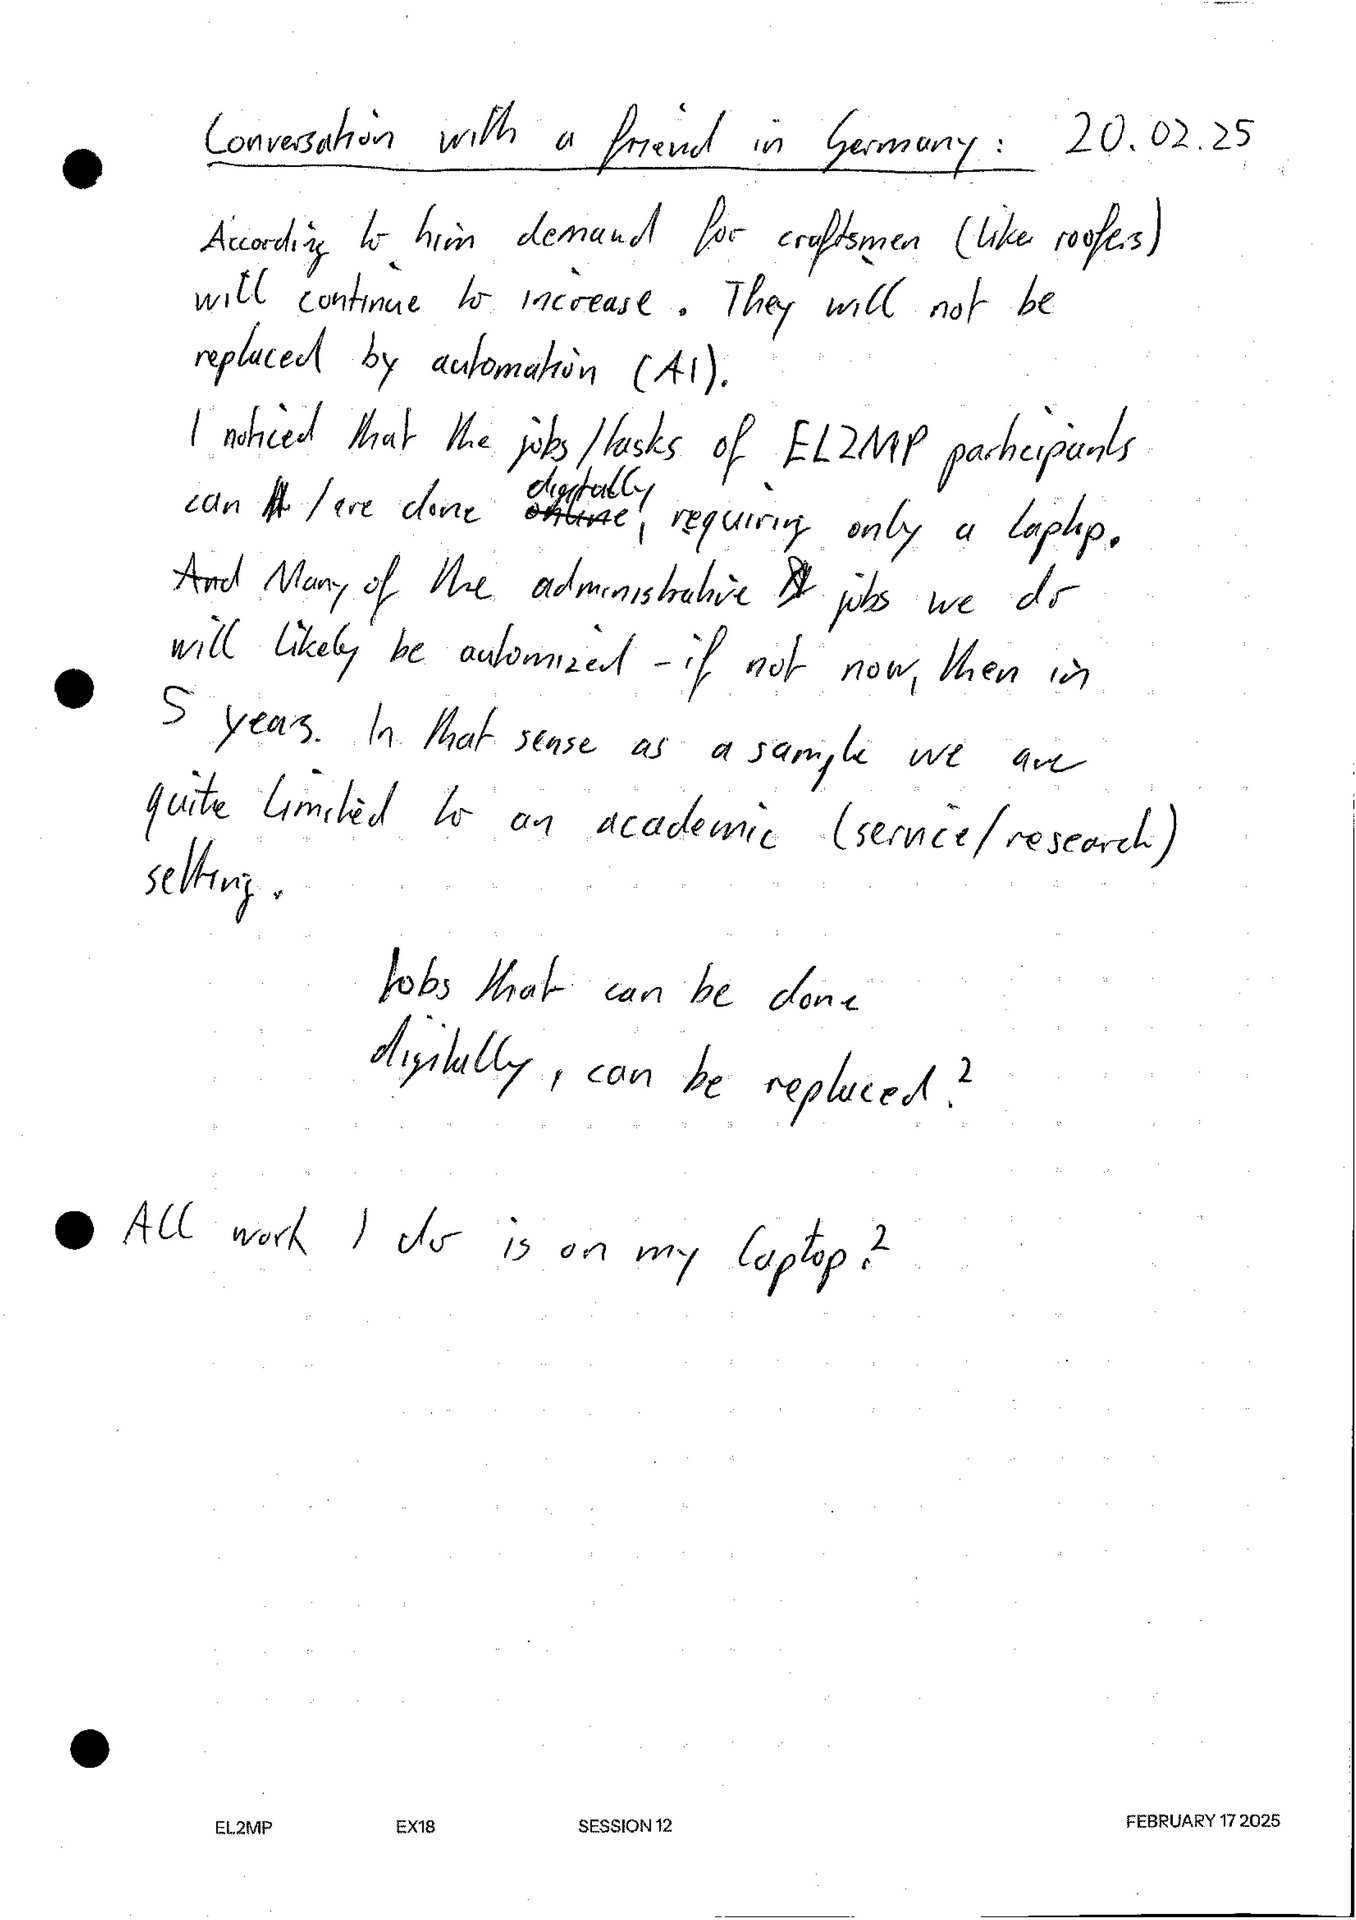 Conversation with a friend in Germany: 20.02.25
According to him demand for craftsmen (like roofers)
will continue to increase. They will not be
replaced by automation (AI).
I noticed that the jobs/tasks of EL2MP participants
digitally
can /are done online, requiring only a laptop.
And Many of the administrative jobs we do
will likely be automized - if not now, then in
5 years. In that sense as a sample we are
quite limited to an academic (service/research)
setting.
Jobs that can be done
digitally, can be replaced?
All work I do is on my laptop?
EL2MP EX18 SESSION 12 FEBRUARY 17 2025